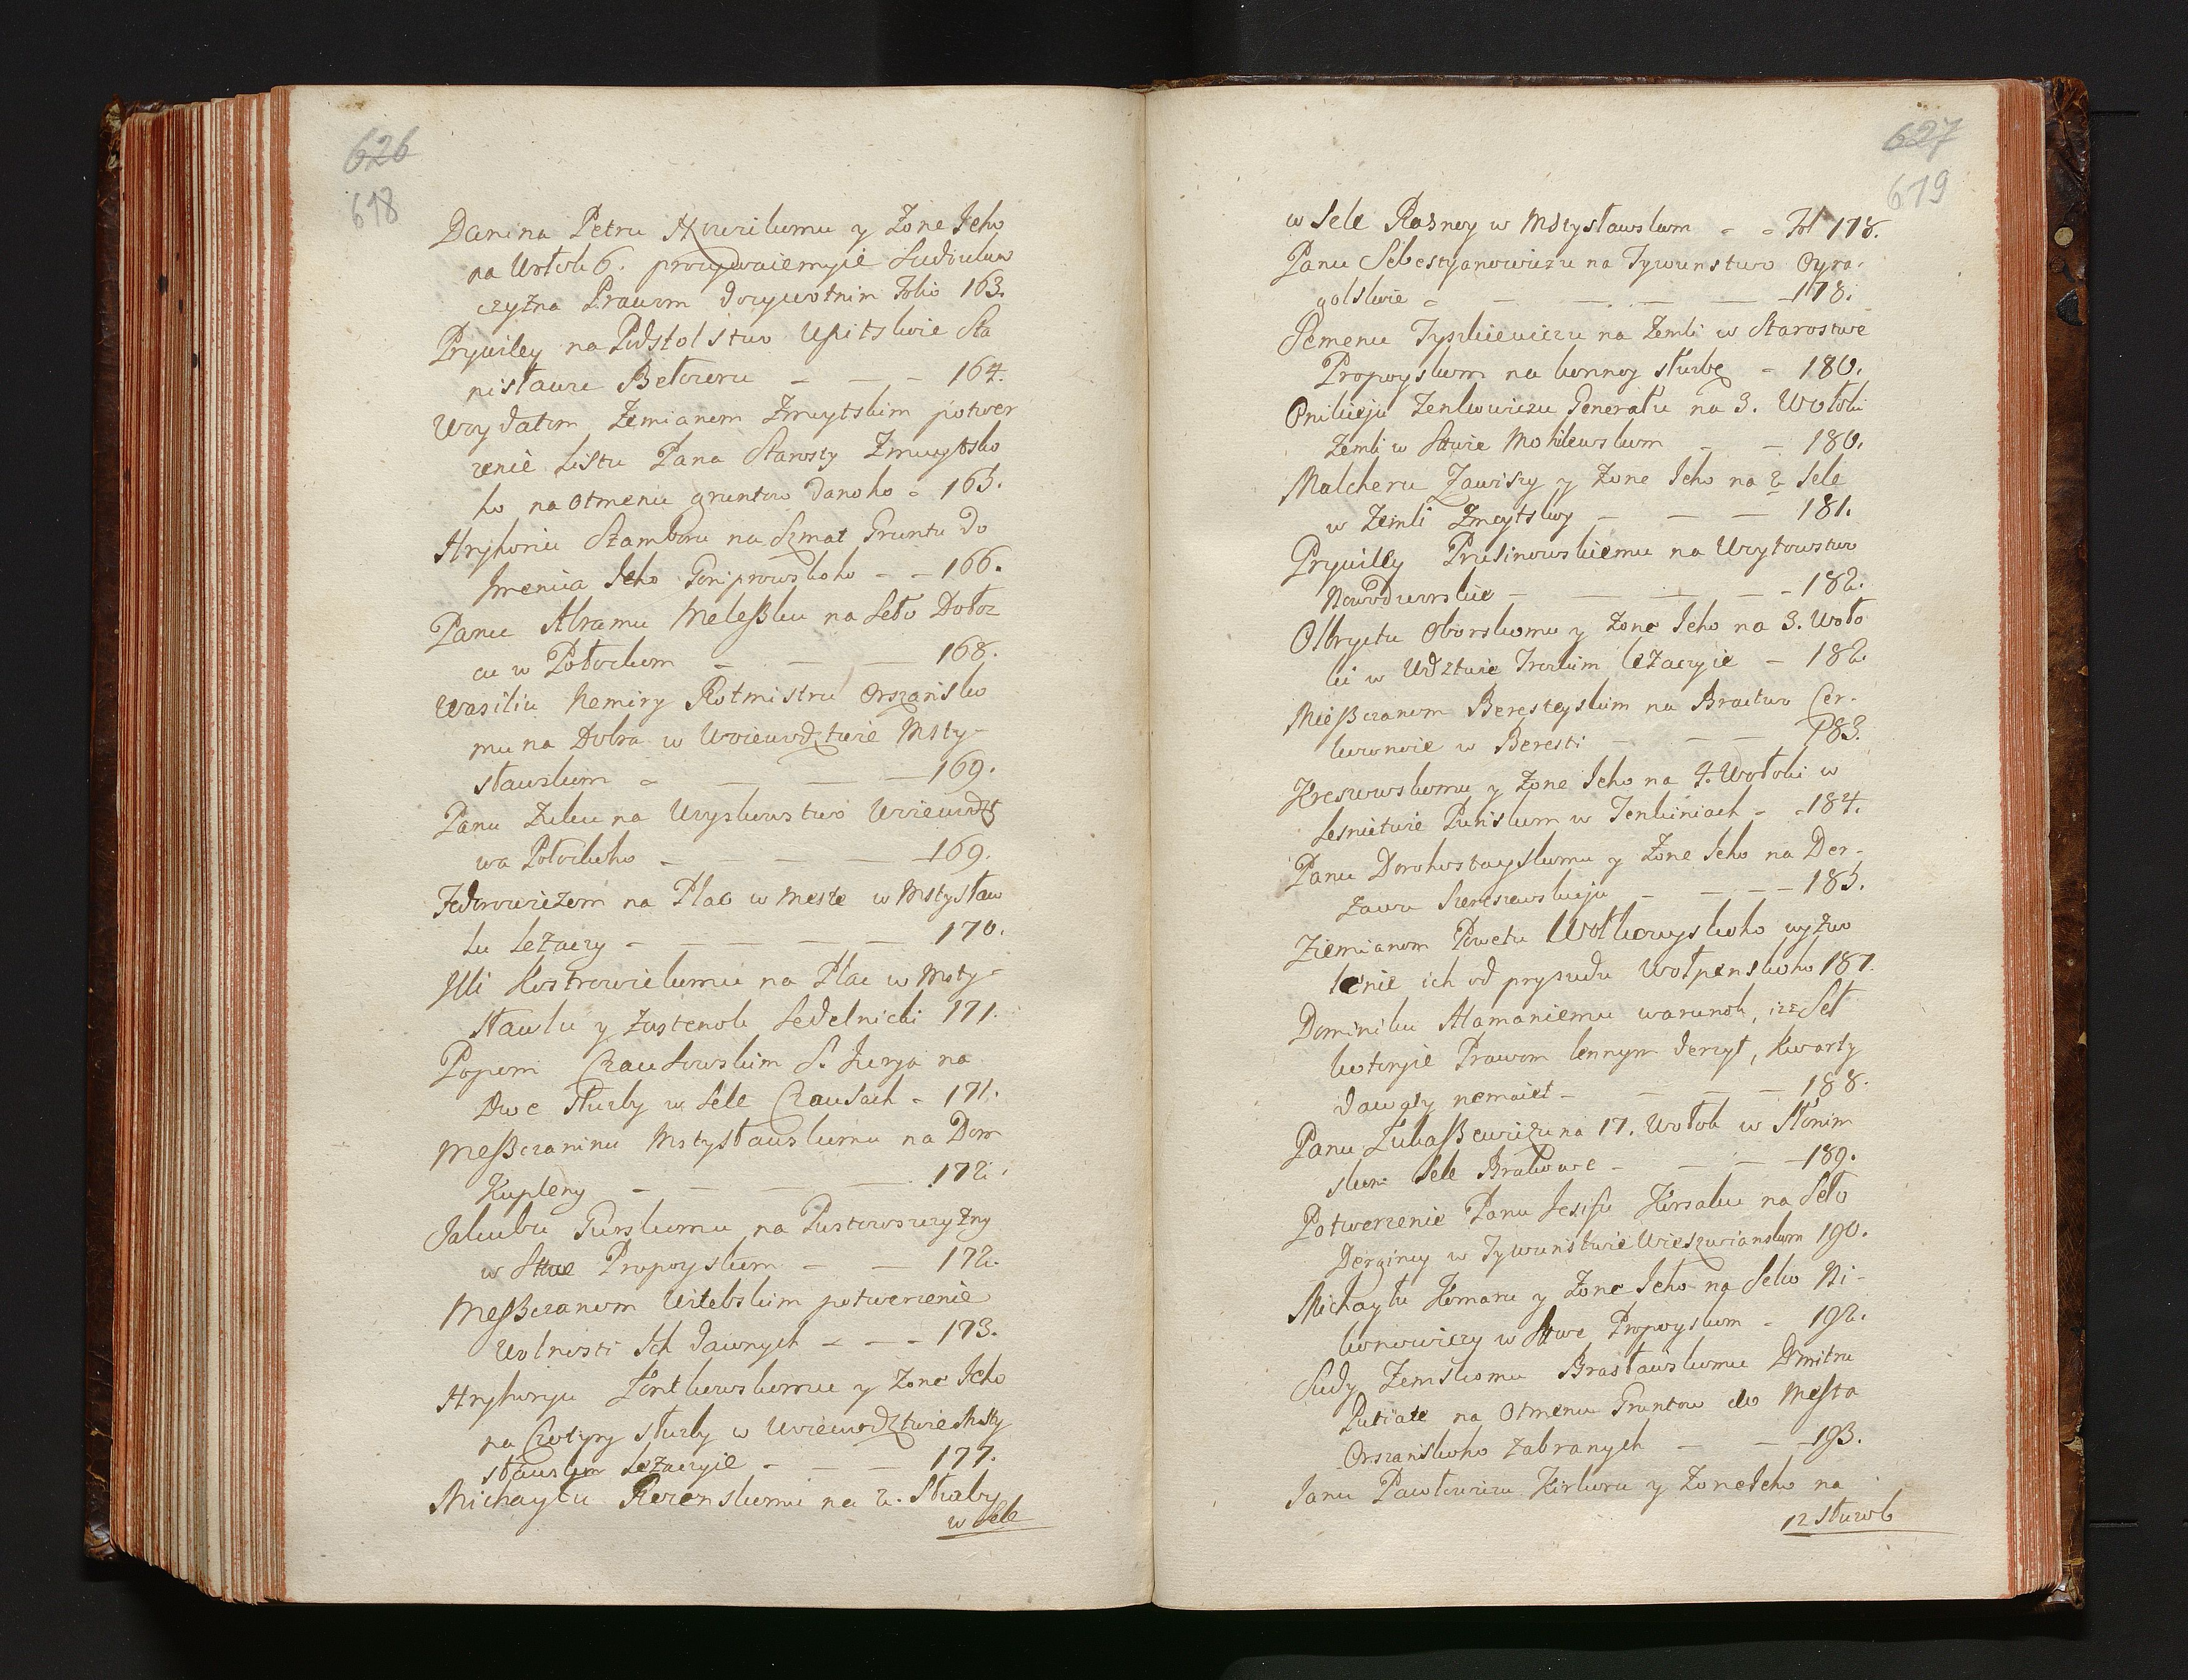 626
618
Danina Petru y Żone Jeho
na Wołok 6. prozywaiemyie
czyzna Prawom dozywotnim Folio 163.
Prywiley na Podstolstwo Upitskoie Sta
nisławu Bełozoru – – – 164.
Wsy Datom Zemianom Zmuytskim potwer
zenie Listu Pana Starosty Zmuytsko
ho na otmenu gruntow danoho - 165.
Hryhoriu Stamboru na Szmat Gruntu do
Imenia Jeho – – 166.
Panu Abramu Meleßku na Seło Dołoz
cu w Połockom – – – 168.
Wasiliu Nemiry Rotmistru Orszansko
mu na Dobra w Woiewodztwie Msty-
sławskom – – – – 169.
Panu Zuku na Woyskowstwo Woiewodzt
wa Połockoho – – – – 169.
Fedorowiczom na Plac w meste w Mstysław
lu leżaczy – – – – – 170.
Illi Kostrowickomu na Plac w Msty-
sławlu y zastenok Sedelnicki 171.
Popom Czausowskim S. Jurja na
Dwe służby w Sele Czausach - 171.
Meßczaninu Mstysławskomu na Dom
Kupleny – – – – 172.
Jakubu Gurskomu na Pustowszczyzny
w Stwe Propoyskom – – 172.
Meßczanom Witebskim potwerzenie
Wolnosti Ich dawnych – – – 173.
Hryhorju Żontkowskomu y Zone Jeho
na Czotyry służby w Woiewodztwie Msty
sławskom leżaczyie – – – 177.
Michayłu Rezanskomu na 2. Służby
w Sele
627
619
w Sele Rasney w Mstysławskom – – Fol 178.
Panu Sebestyanowiczu na Tywunstwo Oyra-
golskoie – – – – – 178.
Semenu Tyszkiewiczu na Zemli w Starostwe
Propoyskom na konnoy służbe – 180.
Onikieju Zenkowiczu Generału na 3. Wołoki
Zemli w Stwie Mohilewskom – – 180.
Malcheru Zawiszy y Zone Jeho na 2 Sele
w Zemli Zmoytskoy – – – 181.
Prywiley Prusinowskiemu na Woytowstwo
Nowodworskie – – – – 182.
Olbrychtu Oborskomu y Zone Jeho na 3. Woło
ki w Wdztwie Trockim leżaczyie – 182.
Mießczanom Beresteyskim na Bractwo Cer-
kownoie w Beresti – – – 183.
Kreszowskomu y Zone Jeho na 4. Wołoki w
Lesnictwie Punskom w Jenkiniach – – 184.
Panu Dorohostayskomu y Zone Jeho na Der-
zawu Szereszewskuju – – – – 185.
Ziemianom Powetu Wołkowyskoho wyzwo
lenie ich od prysudu Wołpenskoho 187.
Dominiku Alamaniemu warunok, iż z Seł
kotoryie Prawom lennym derzyt, kwarty
dawaty nemaiet – – – – 188.
Panu Łukaßewiczu na 17. Wołok w Słonim
skom Sele Brakowe – – – – 189.
Potwerzenie Panu Jesifu Korsaku na Seło
Dergincy w Tywunstwie Wieszwianskom 190.
Michayłu Komaru y Zone Jeho na Selco Ni-
konowiczy w Stwe Propoyskom – 192.
Sudy Zemskomu Brasławskomu Dmitru
Putiate na Otmenu Gruntow do Mesta
Orszanskoho zabranych – – – 193.
Janu Pawłowiczu Kirkoru y Zone Jeho na
12 służob